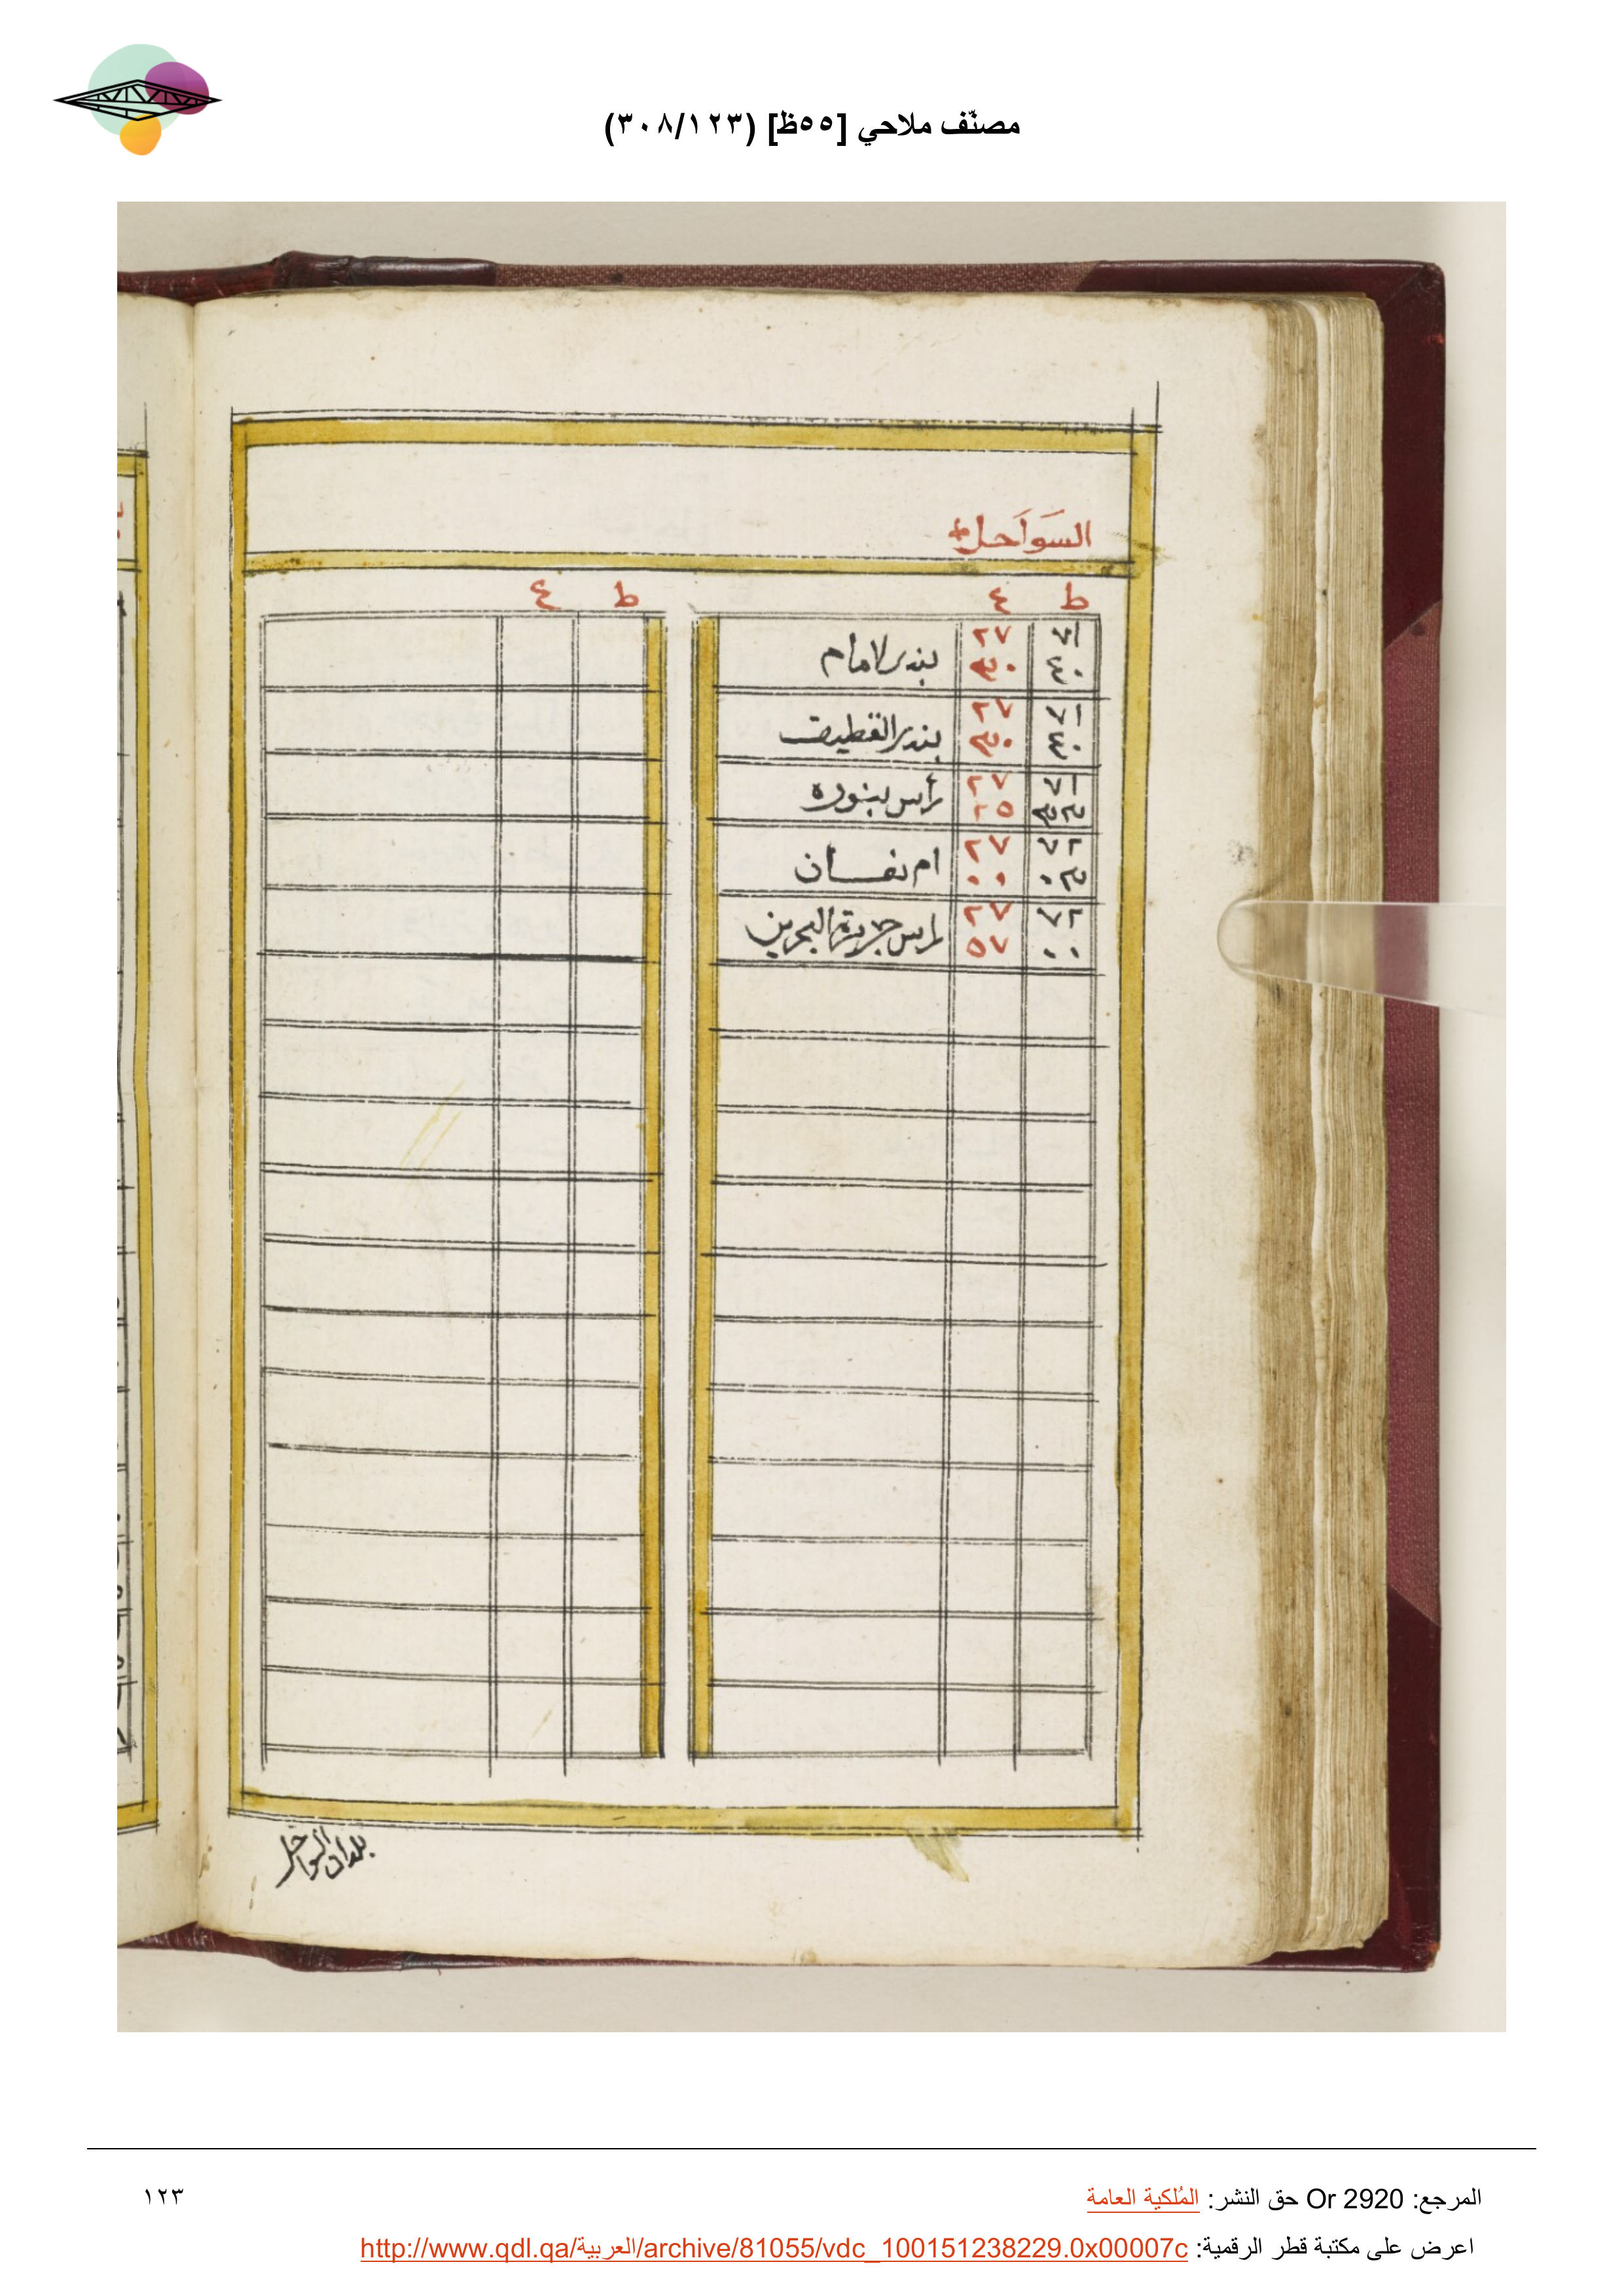 مصنّف ملاحي [٥٥ظ] (٣٠٨/١٢٣)
السَوَاحل
ط ع ط ع
٢٧ بندر الامام
٣٠ ٤٠
٢٧ بندر القطيف
٣٠ ٤٠
٢٧ رأس بنوره
٢٥
٢٧ ٧٢ ام نفسان
٠٠
٢٧ ٧٢ راس جزيرة البحرين
٥٧ ٠٠
بلدان السواحل
المرجع: Or 2920 حق النشر: المُلكية العامة
١٢٣
اعرض على مكتبة قطر الرقمية: http://www.qdl.qa/العربية/archive/81055/vdc_100151238229.0x00007c